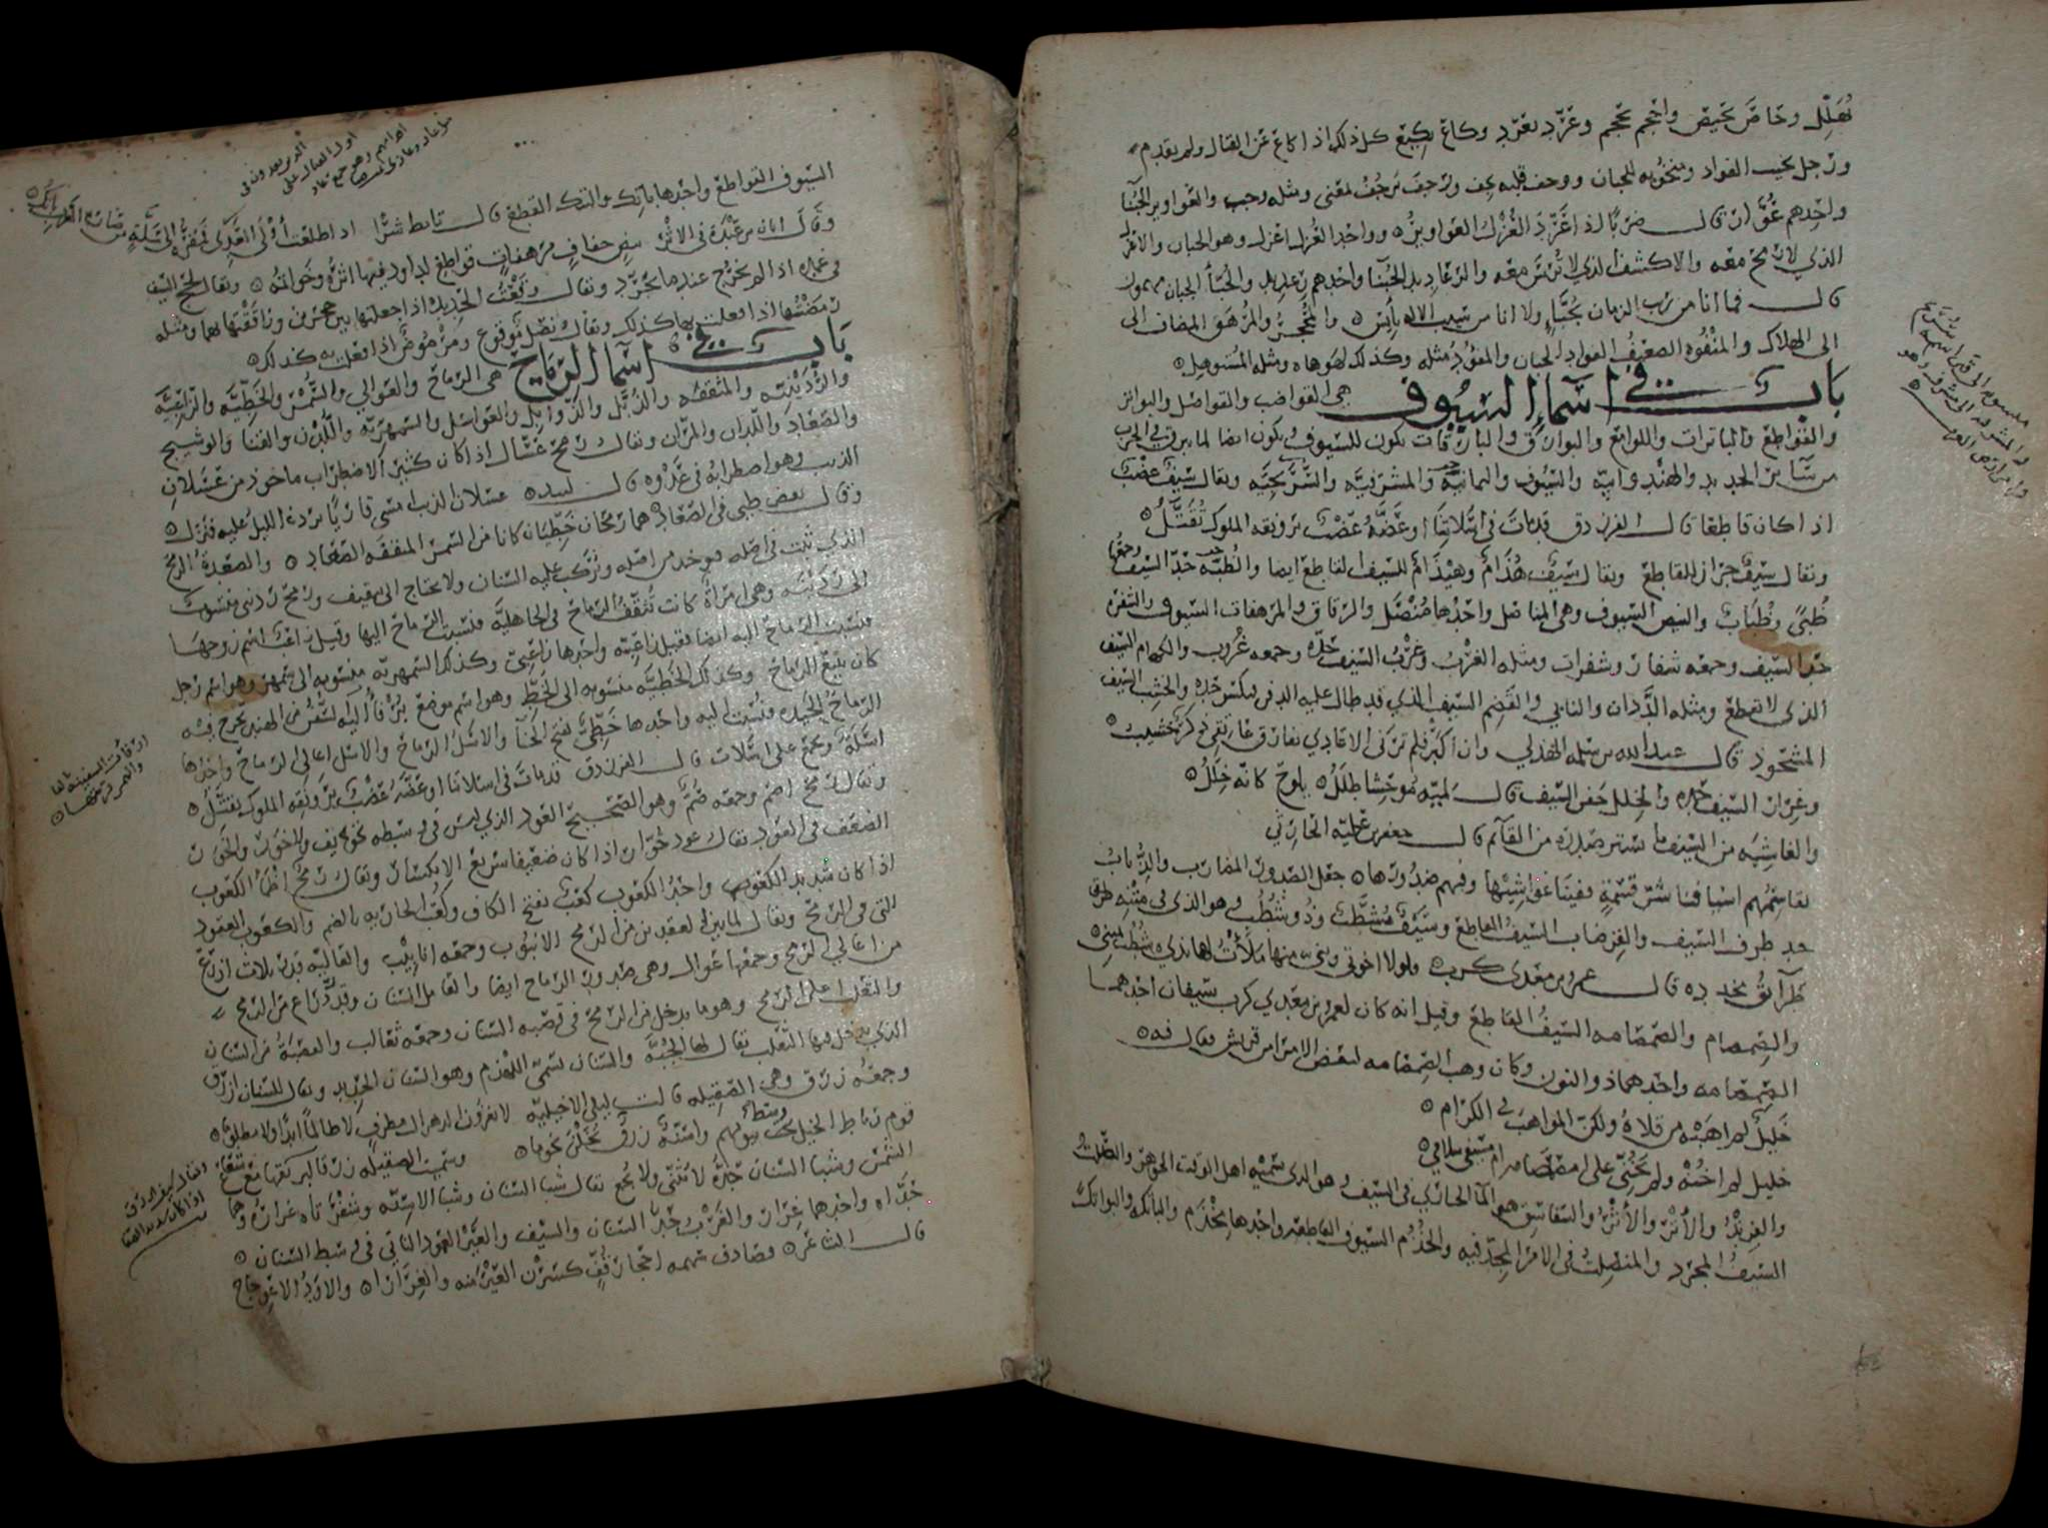 يهلل وخاض يخيص واحجم يحجم وعرد يعرد وكاع يكيع كل ذلك اذا كاع عن القتال ولم يقدم
ورجل نخيب الفواد ومنخوبه للجبان ووجف قلبه يجف ورجف يرجف لمعنى ومثله وجب والعواوير الجبنا
واحدهم عوار قال ضربا اذا عرد العزل العواوير وواحد العزل اعزل وهو الجبان والاعزل
الذي لا رمح معه والاكشف الذي لا ترس معه والرعاديد الجبنا واحدهم رعديد والجبأ الجبان
قال فما انا من ريب الزمان بجبإ ولا انا من سيب الاله بأيس
الى الهلاك والمنفوه الضعيف الفواد الجبان والمفود مثله وكذلك الهوهاه ومثله المستوهل
باب في اسماء السيوف هي القواضب والقواصل والبواتر
والقواطع والباترات واللوامع والبوارق والبارقات تكون للسيوف ويكون ايضا لما يبرق في الحرب
من سائر الحديد والهندوانيه والسيوف واليمانيه والمشرفيه والسريجيه ويقال سيف عضب
اذا كان قاطعا قال الفرزدق قدمات في اسلاتنا او عضه عضب برونقه الملوك تقتل
ويقال سيف جراز للقاطع ويقال سيف هذام وهيذام للسيف القاطع ايضا والظبه حد السيف وجمعها
ظبى وظبات والبيض السيوف وهي المناصل واحدها منصل والرقاق والمرهفات السيوف والشفر
حد السيف وجمعه شفار وشفرات ومثله الغرب وغرب السيف حده وجمعه غروب والكهام السيف
الذي لا يقطع ومثله الددان والنابي والقضم السيف الذي قد طال عليه الدهر فتكسر حده والخشيب السيف
المشحوذ قال عبد الله بن سلمه الهذلي وان اكبر فلم تزنى الاعادي يفارق عاتقي ذكر خشيب
وغرار السيف حده والخلل جفن السيف قال لميه موحشا طلل يلوح كانه خلل
والغاشيه من السيف ما ستر صدره من القائم قال جعفر بن علبه الحارثي
نقاسمهم اسيافنا شر قسمة ففينا غواشيها وفيهم صدورها جعل الصدور المضارب والذباب
حد طرف السيف والقرضاب السيف القاطع وسيف مشطب وذو شطب وهو الذي في متنه طرق
طرائق بحديده قال عمرو بن معدي كرب ولولا اخوتي وبني منها ملأت لها بذي شطب يميني
والصمصام والصمصامه السيف القاطع وقيل انه كان لعمرو بن معدي كرب سيفان احدهما
الصمصامه واحدهما ذو النون وكان وهب الصمصامه لبعض الامرا من قريش فقال فيه
خليل لم اهبه من قلاه ولكن المواهب في الكرام
خليل لم اخنه ولم يخني على الصمصام ام سيفي سلامي
والفرند والأثر والأثر والسفاسق هو الما الحايك في السيف وهو الذي يسميه اهل الوقت الجوهر والصلت
السيف المجرد والمنصلت في الامر المجد فيه والخذم السيوف القاطعه واحدها مخذم والباتكه والبواتك
السيوف القواطع واحدها باتك والبتك القطع قال تابط شرا اذا طلعت أولى العدي فنفره الى سلة من صارم الغرب باتك
وقال ابان بن عبدة في الاثر بيض خفاف مرهفات قواطع لداود فيها اثره وخواتمه ويقال لحج السيف
في غمده اذا لم يخرج عندما يجرد ويقال وقعت الحديده اذا جعلتها بين حجرين ودققتها بهما ومثله
رمضتها اذا فعلت بها كذلك ويقال نصل موقوع ومرموض اذا فعل به كذلك
باب في اسما الرماح هي الرماح والعوالي والسمر والخطيه والزاعبيه
والردينيه والمثقفه والذبل والذوابل والعواسل والسمهريه واللدن والقنا والوشيج
والصعاد واللدان والمران ويقال رمح عسال اذا كان كثير الاضطراب ماخوذ من عسلان
الذيب وهو اضطرابه في عدوه قال لبيد عسلان الذيب امسى قاربا برد الليل عليه فنسل
وقال بعض طيى في الصعاد هما رمحان خطيان كانا من السمر المثقفه الصعاد والصعدة الرمح
الذي نبت في اصله فيوخذ من اصله ويركب عليه السنان ولا يحتاج الى تثقيف ورمح رديني منسوب
الى ردينه وهي امرأة كانت تثقف الرماح في الجاهليه فنسبت الرماح اليها وقيل زاعب اسم زوجها
فنسبت الرماح اليه ايضا فقيل زاعبيه واحدها زاعبي وكذلك السمهريه منسوبه الى سمهر وهو اسم رجل
كان يبيع الرماح وكذلك الخطيه منسوبه الى الخط وهو اسم موضع يرفأ اليه السفن من الهند يخرج فيه
الرماح الجيده فنسبت اليه واحدها خطي بفتح الخا والاسل الرماح والاسل اعالي الرماح واحدها
اسلة وتجمع على اسلات قال الفرزدق قدمات في اسلاتنا او عضه عضب برونقه الملوك تقتل
ويقال رمح اصم وجمعه صم وهو الصحيح العود الذي ليس في وسطه تجويف ولا خور والخور
الضعف في العود يقال عود خوار اذا كان ضعيفا سريع الانكسار ويقال رمح اظمأ الكعوب
اذا كان شديد الكعوب واحد الكعوب كعب بفتح الكاف وكعب الجاريه بالضم والكعوب العقود
التي في الرمح ويقال لما بين العقدين من الرمح الانبوب وجمعه انابيب والعاليه قدر ثلاث اذرع
من اعالي الرمح وجمعها عوال وهي صدور الرماح ايضا والعامل السنان وقدر ذراع من الرمح
والثعلب اعلى الرمح وهو ما يدخل من الرمح في قصبه السنان وجمعه ثعالب والقصبة من السنان
الذي يدخل فيها الثعلب يقال لها الجبه والسنان يسمى اللهذم وهو السنان الحديد ويقال للسنان ازرق
وجمعه زرق وهي الصقيله قالت ليلى الاخيليه لا تغزون الدهر ال مطرف لا ظالما ابدا ولا مظلوما
قوم رباط الخيل وسط بيوتهم واسنة زرق يخلن نجوما وسميت الصقيله زرقا لبريقها مع شعاع
الشمس وشبا السنان حده لا يثنى ولا يجمع يقال شبا السنان وشبا الاسنه وشفرتاه غراره وهما
حداه واحدهما غرار والغرب حد السنان والسيف والعير العود الناتي في وسط السنان
قال الشاعر فصادف سهمه احجار قف كسرن العير منه والغرارا والاود الاعوجاج